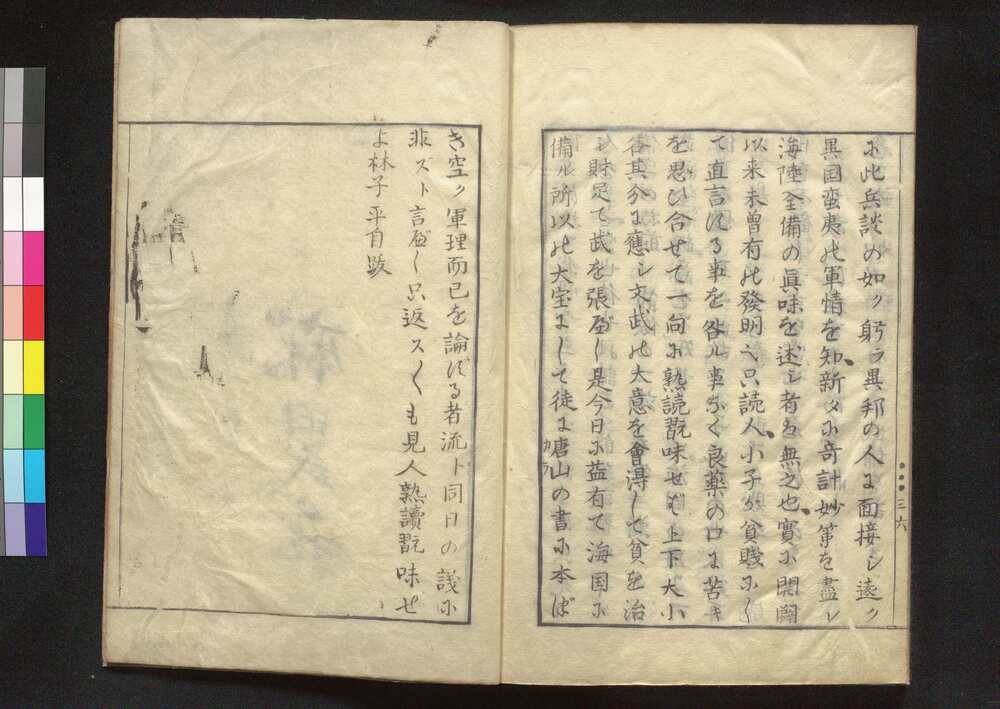 に此兵談の如ク躬ラ異邦の人に面接シ遠ク
異国蛮夷の軍情を知新タに奇計妙策を盡シ
海陸全備の眞味を述シ者ハ無之也實に開闢
以来未曾有の發明也只読人小子が貧賤にし
て直言する事を咎ル事なく良薬の口に苦キ
を思ひ合せて一向に熟読翫味せば上下大小
各其分に應シ文武の大意を會得して貧を治
シ財足て武を張べし是今日に益有て海国に
備ル所以の大宝にして徒に唐山の書に本ば
カラ
三六
き空ク軍理而已を論ずる者流ト同日の談に
非ズト言べし只返ス〱も見人熟讀翫味せ
よ林子平自跋